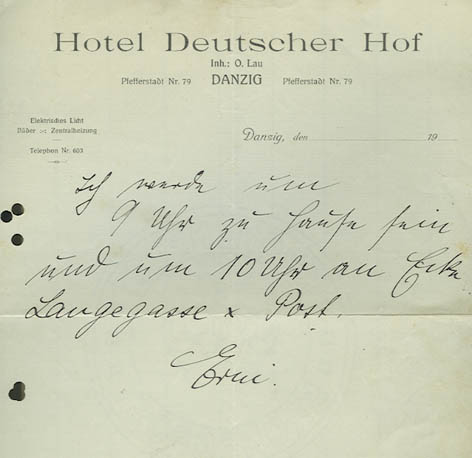 Hotel Deutscher Hof
Inh.: O. Lau
Pfefferstadt Nr. 79 DANZIG Pfefferstadt Nr. 79
Elektrisches Licht
Bäder :-: Zentralheizung
Telephon Nr. 603
Danzig, den 19
Ich werde um
9 Uhr zu Hause sein
und um 10 Uhr an Ecke
Langegasse x Post.
Erni.